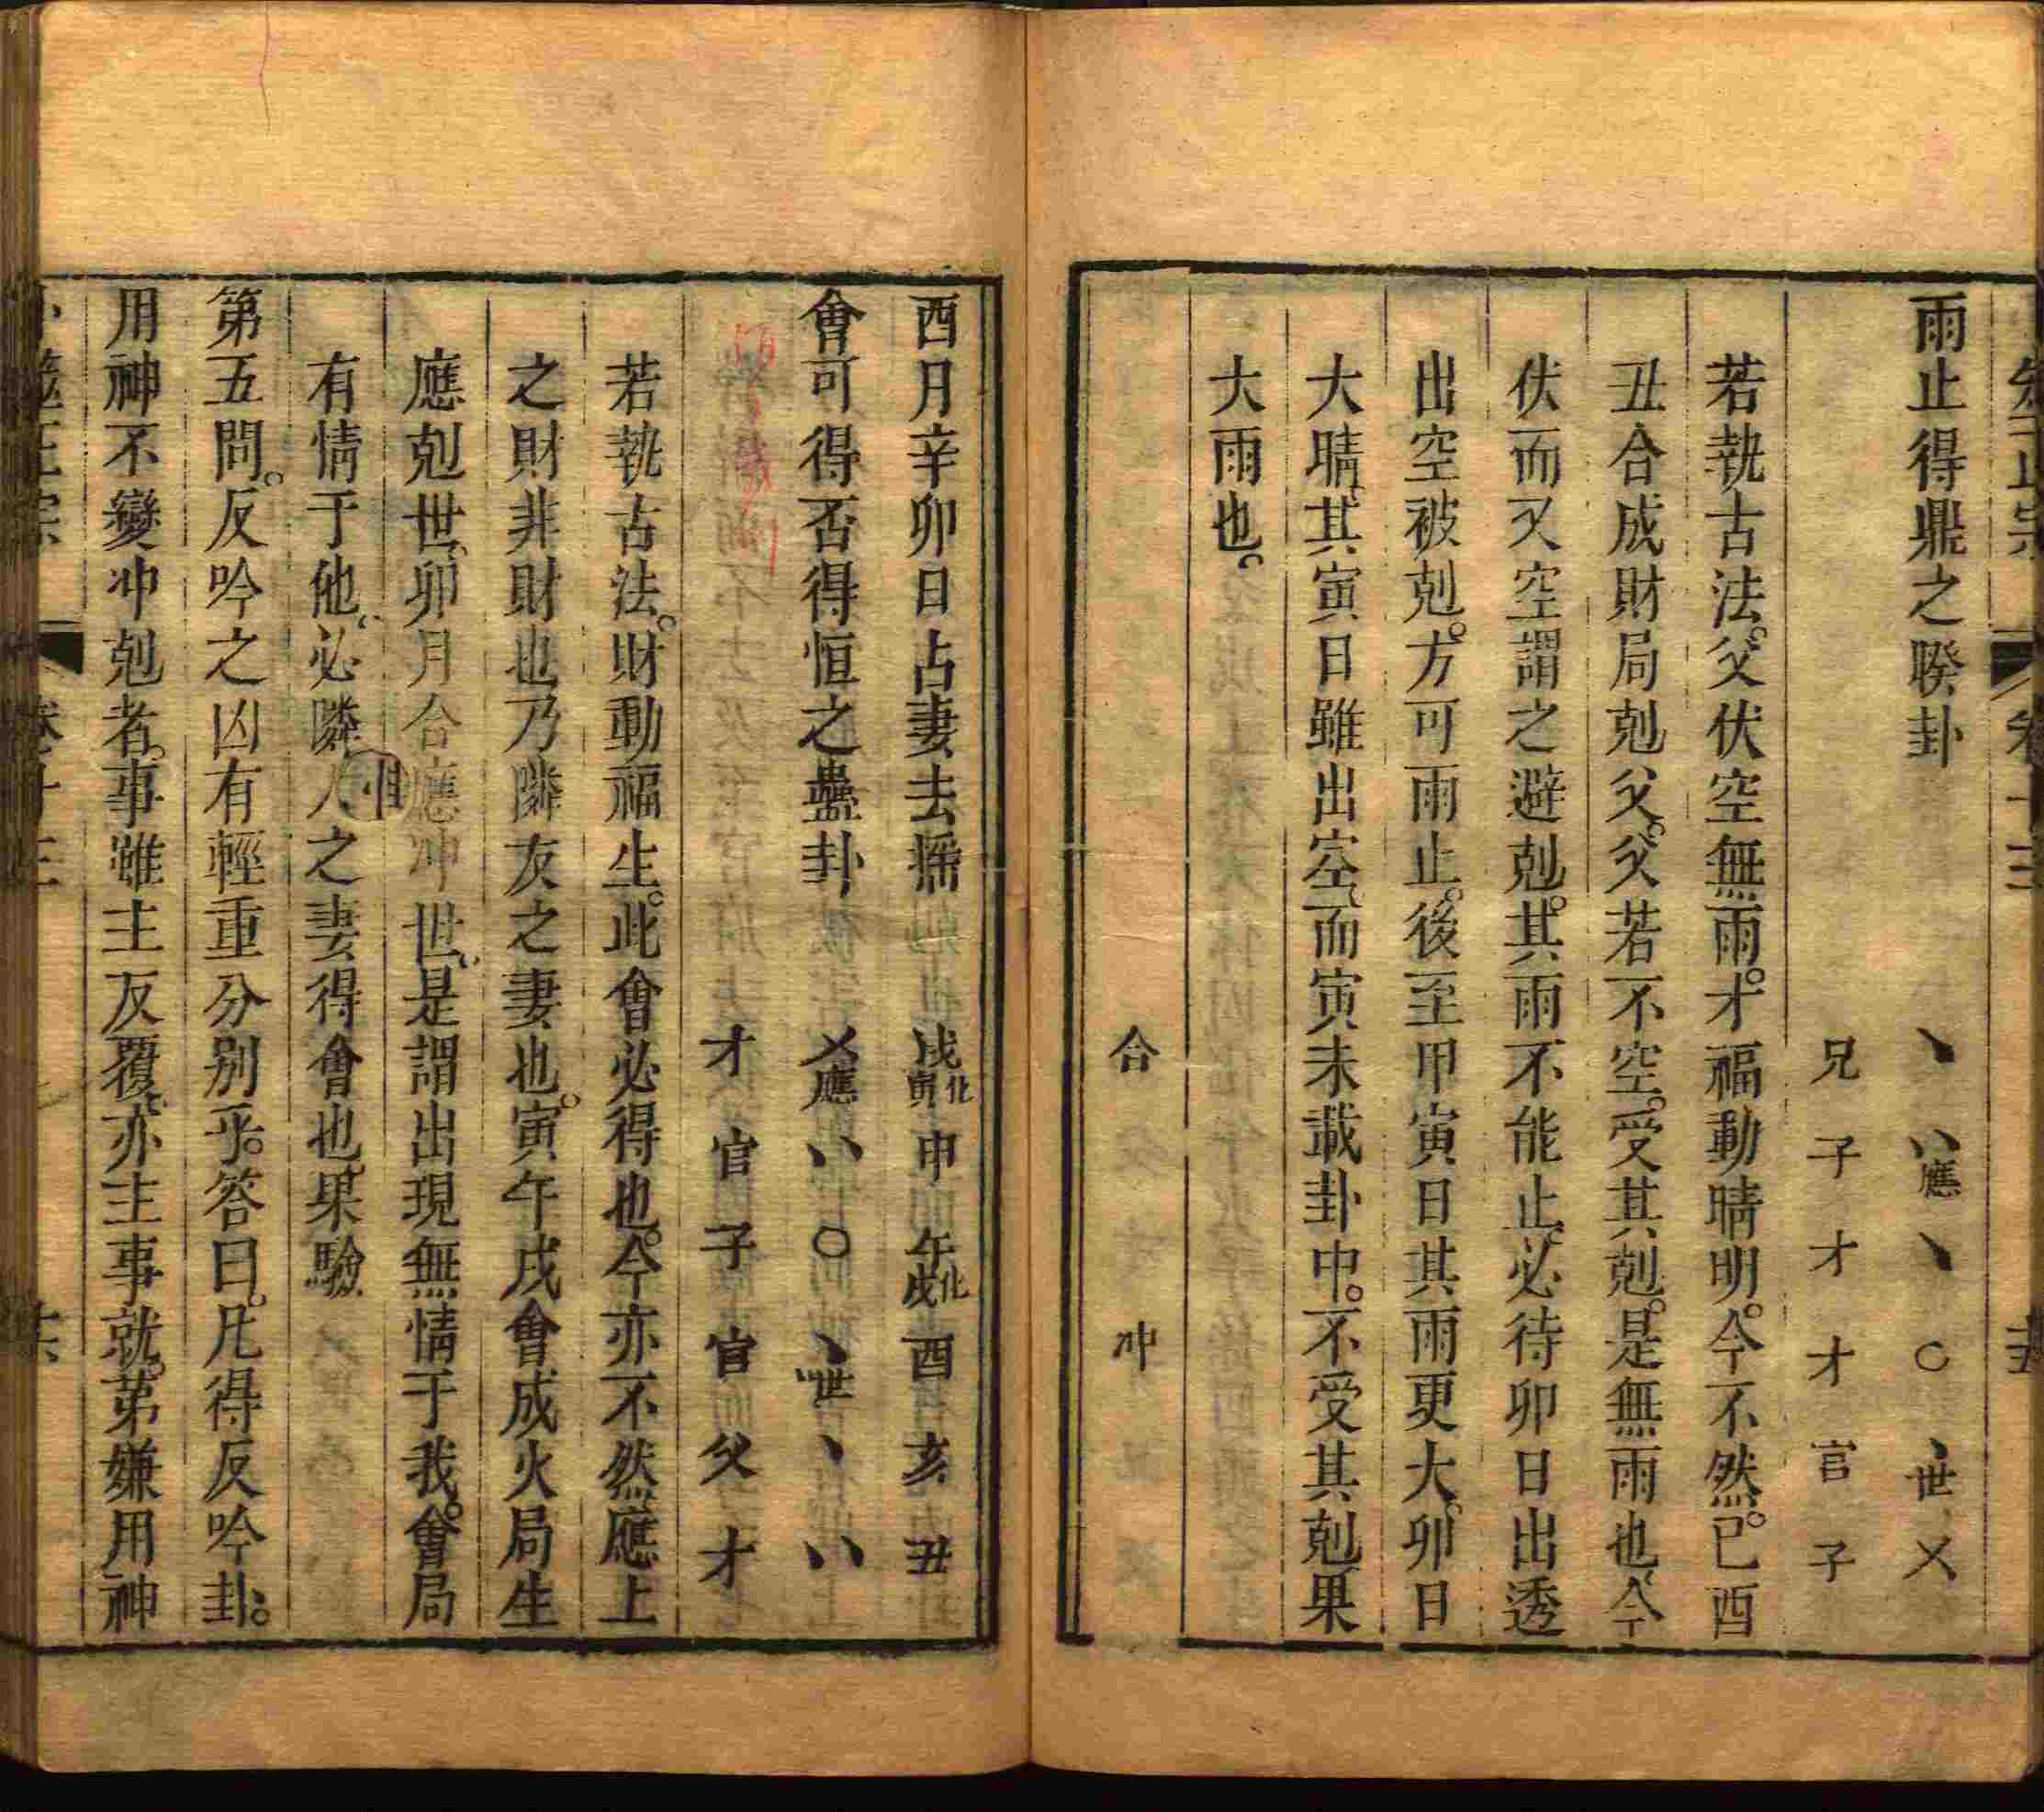 卜筮正宗 卷十三 十五
雨止得鼎之睽卦 、 〃應 、 ○ 、世 乂
兄 子 才 才 官 子
若執古法。父伏空無雨。才福動晴明。今不然。巳酉
丑合成財局剋父。父若不空。受其剋。是無雨也、今
伏而又空謂之避剋。其雨不能止。必待卯日出透
出空被剋。方可雨止。後至甲寅日其雨更大。卯日
大晴、其寅日雖出空、而寅未識卦中。不受其剋果
大雨也。
合 冲
酉月辛卯日占妻去搖 戌化寅 申 午化戌 酉 亥 丑
會可得否得恒之蠱卦 乂應 〃 ○ 、世 、 〃
才 官 子 官 父 才
若執古法。財動福生。此會必得也。今亦不然應上
之財非財也乃隣友之妻也。寅午戌會成火局生
應剋世、卯月合應冲世、是謂出現無情于我。會局
有情于他、必隣人之妻得會也、果驗
第五問。反吟之凶有輕重分別乎。答曰。凡得反吟卦。
用神不變冲剋者。事雖主反覆、亦主事就。苐嫌用神
卜筮正宗 卷十三 十六